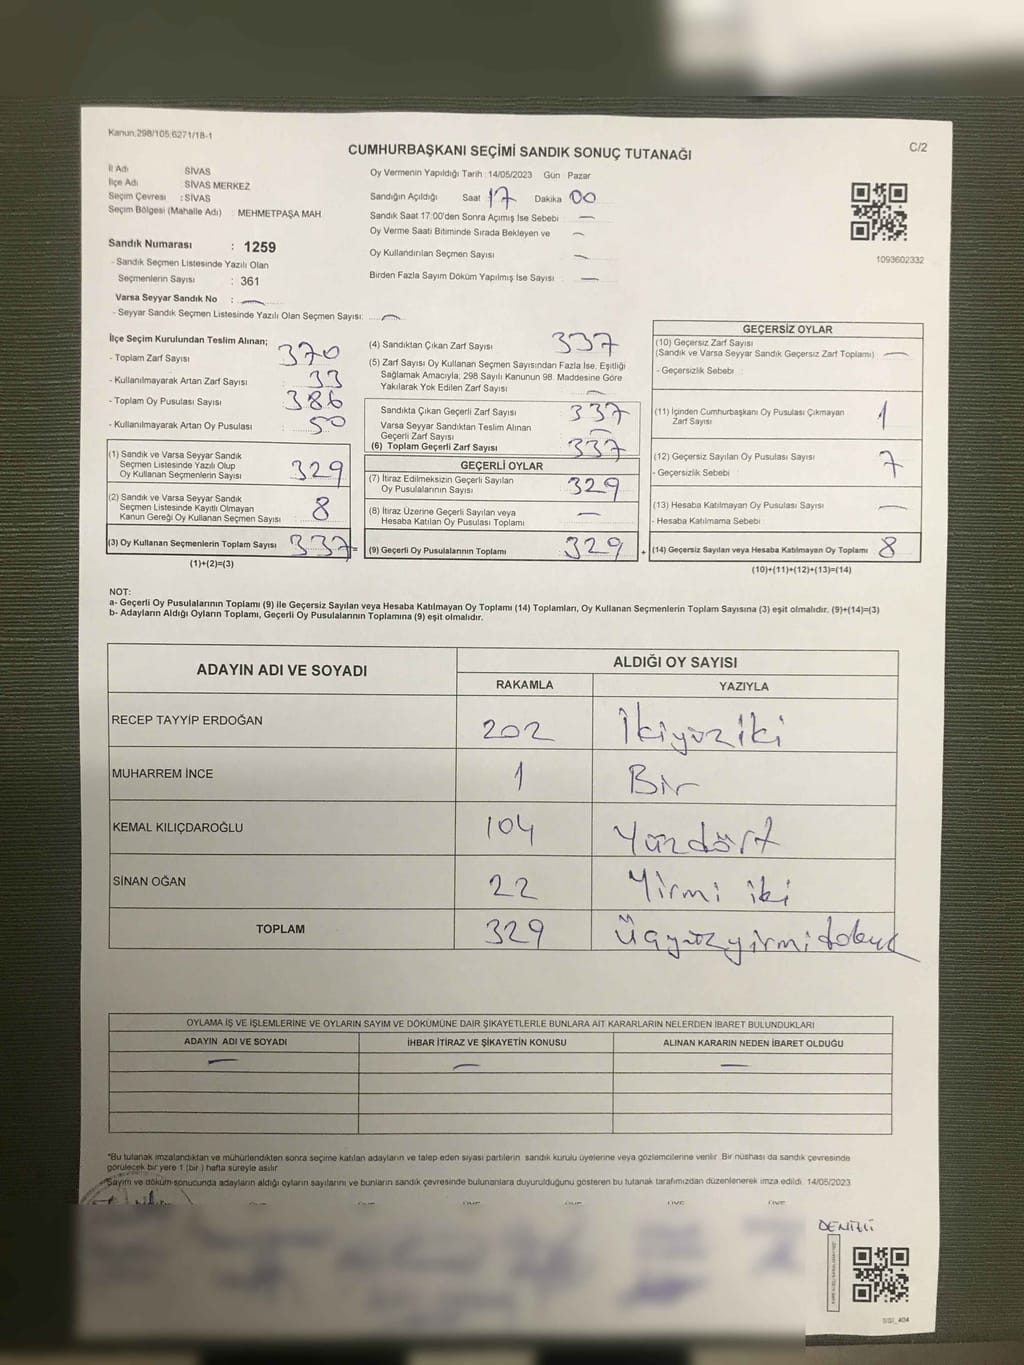 Kanun:298/105;6271/18-1
C/2
CUMHURBAŞKANI SEÇİMİ SANDIK SONUÇ TUTANAĞI
İl Adı : SİVAS
İlçe Adı : SİVAS MERKEZ
Seçim Çevresi : SİVAS
Seçim Bölgesi (Mahalle Adı) : MEHMETPAŞA MAH.
Sandık Numarası : 1259
- Sandık Seçmen Listesinde Yazılı Olan
Seçmenlerin Sayısı : 361
Varsa Seyyar Sandık No : —
- Seyyar Sandık Seçmen Listesinde Yazılı Olan Seçmen Sayısı: —
Oy Vermenin Yapıldığı Tarih :14/05/2023 Gün Pazar
Sandığın Açıldığı Saat 17 Dakika 00
Sandık Saat 17:00'den Sonra Açımış İse Sebebi : —
Oy Verme Saati Bitiminde Sırada Bekleyen ve —
Oy Kullandırılan Seçmen Sayısı —
Birden Fazla Sayım Döküm Yapılmış İse Sayısı : —
1093602332
İlçe Seçim Kurulundan Teslim Alınan;
- Toplam Zarf Sayısı 370
- Kullanılmayarak Artan Zarf Sayısı 33
- Toplam Oy Pusulası Sayısı 386
- Kullanılmayarak Artan Oy Pusulası 50
(1) Sandık ve Varsa Seyyar Sandık
Seçmen Listesinde Yazılı Olup
Oy Kullanan Seçmenlerin Sayısı 329
(2) Sandık ve Varsa Seyyar Sandık
Seçmen Listesinde Kayıtlı Olmayan
Kanun Gereği Oy Kullanan Seçmen Sayısı 8
(3) Oy Kullanan Seçmenlerin Toplam Sayısı 337 =
(1)+(2)=(3)
(4) Sandıktan Çıkan Zarf Sayısı 337
(5) Zarf Sayısı Oy Kullanan Seçmen Sayısından Fazla İse, Eşitliği
Sağlamak Amacıyla, 298 Sayılı Kanunun 98. Maddesine Göre
Yakılarak Yok Edilen Zarf Sayısı —
Sandıkta Çıkan Geçerli Zarf Sayısı 337
Varsa Seyyar Sandıktan Teslim Alınan
Geçerli Zarf Sayısı —
(6) Toplam Geçerli Zarf Sayısı 337
GEÇERLİ OYLAR
(7) İtiraz Edilmeksizin Geçerli Sayılan
Oy Pusulalarının Sayısı 329
(8) İtiraz Üzerine Geçerli Sayılan veya
Hesaba Katılan Oy Pusulası Toplamı —
(9) Geçerli Oy Pusulalarının Toplamı 329 +
GEÇERSİZ OYLAR
(10) Geçersiz Zarf Sayısı
(Sandık ve Varsa Seyyar Sandık Geçersiz Zarf Toplamı) —
- Geçersizlik Sebebi :
(11) İçinden Cumhurbaşkanı Oy Pusulası Çıkmayan
Zarf Sayısı 1
(12) Geçersiz Sayılan Oy Pusulası Sayısı 7
- Geçersizlik Sebebi :
(13) Hesaba Katılmayan Oy Pusulası Sayısı —
- Hesaba Katılmama Sebebi
(14) Geçersiz Sayılan veya Hesaba Katılmayan Oy Toplamı 8
(10)+(11)+(12)+(13)=(14)
NOT:
a- Geçerli Oy Pusulalarının Toplamı (9) ile Geçersiz Sayılan veya Hesaba Katılmayan Oy Toplamı (14) Toplamları, Oy Kullanan Seçmenlerin Toplam Sayısına (3) eşit olmalıdır. (9)+(14)=(3)
b- Adayların Aldığı Oyların Toplamı, Geçerli Oy Pusulalarının Toplamına (9) eşit olmalıdır.
ADAYIN ADI VE SOYADI
ALDIĞI OY SAYISI
RAKAMLA YAZIYLA
RECEP TAYYİP ERDOĞAN 202 İkiyüziki
MUHARREM İNCE 1 Bir
KEMAL KILIÇDAROĞLU 104 Yüzdört
SİNAN OĞAN 22 Yirmi iki
TOPLAM 329 Üçyüzyirmidokuz
OYLAMA İŞ VE İŞLEMLERİNE VE OYLARIN SAYIM VE DÖKÜMÜNE DAİR ŞİKAYETLERLE BUNLARA AİT KARARLARIN NELERDEN İBARET BULUNDUKLARI
ADAYIN ADI VE SOYADI İHBAR İTİRAZ VE ŞİKAYETİN KONUSU ALINAN KARARIN NEDEN İBARET OLDUĞU
— — —
*Bu tutanak imzalandıktan ve mühürlendikten sonra seçime katılan adayların ve talep eden siyasi partilerin sandık kurulu üyelerine veya gözlemcilerine verilir. Bir nüshası da sandık çevresinde
görülecek bir yere 1 (bir ) hafta süreyle asılır.
Sayım ve döküm sonucunda adayların aldığı oyların sayılarını ve bunların sandık çevresinde bulunanlara duyurulduğunu gösteren bu tutanak tarafımızdan düzenlenerek imza edildi. 14/05/2023
DENİZLİ